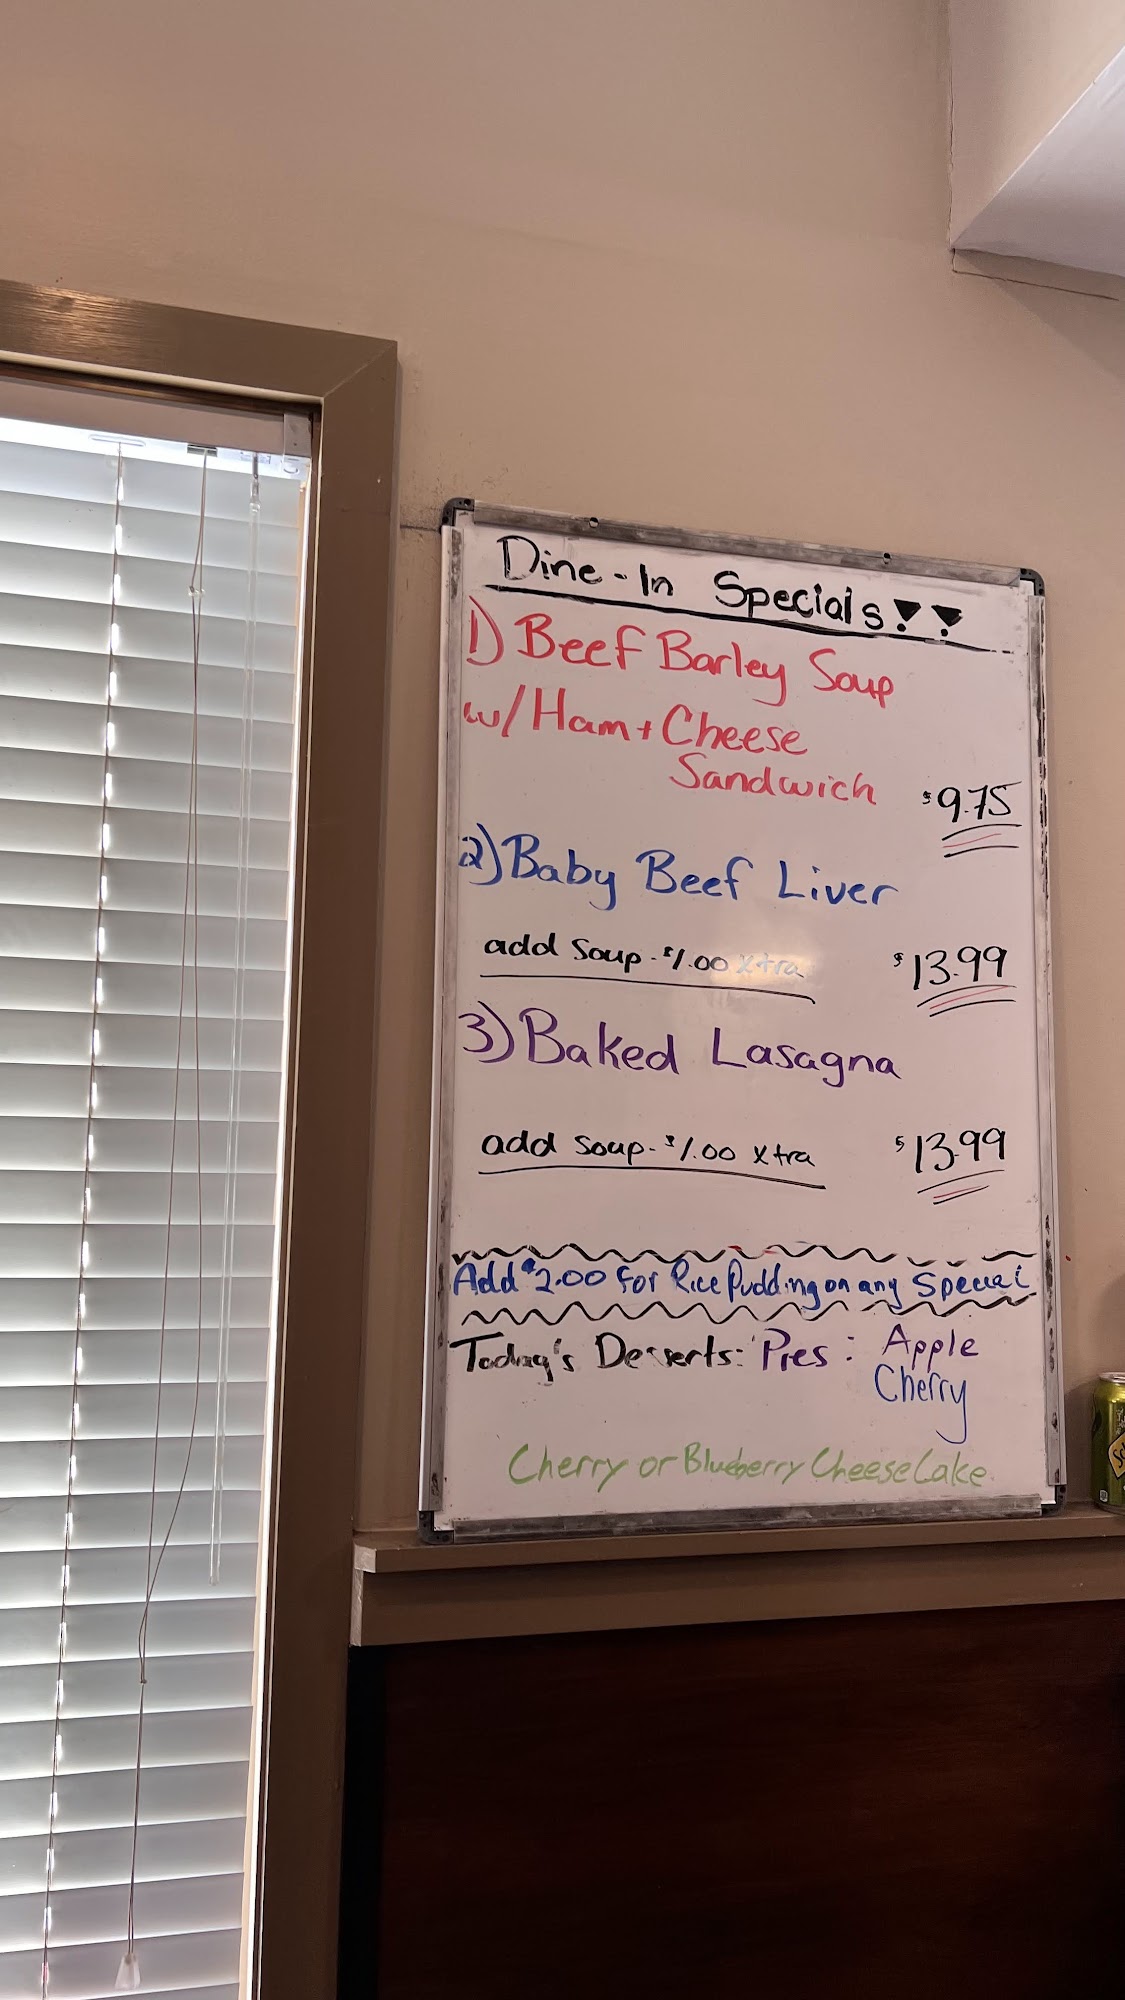 Dine-In Specials!!
1) Beef Barley Soup
w/ Ham + Cheese
Sandwich $9.75
2) Baby Beef Liver
add Soup - $1.00 Xtra $13.99
3) Baked Lasagna
add Soup - $1.00 Xtra $13.99
Add $2.00 for Rice Pudding on any Special
Today's Desserts: Pies: Apple
Cherry
Cherry or Blueberry CheeseCake